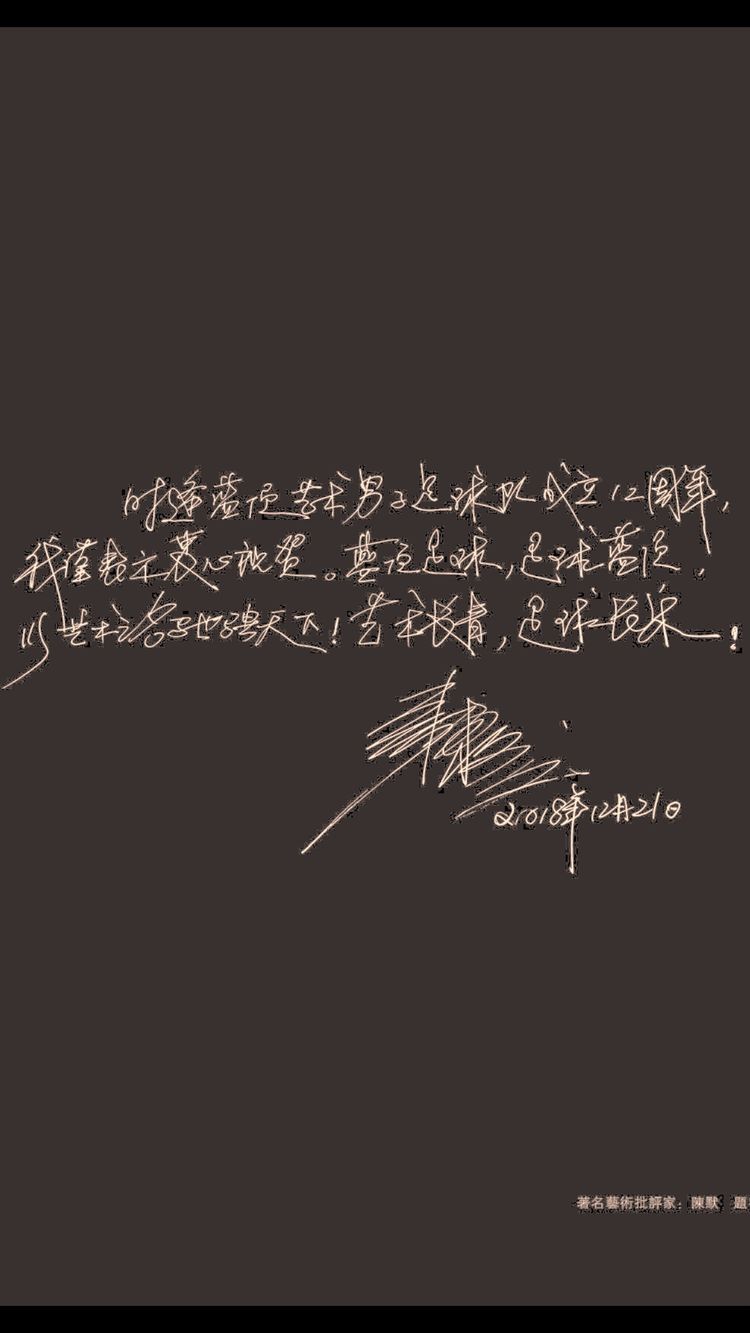 时逢蓝顶艺术男子足球队成立12周年,
我谨表示衷心祝贺。蓝顶足球,足球蓝顶,
以艺术之名 天下!艺术长青,足球长
2018年12月21日
著名藝術批評家:陳默 題